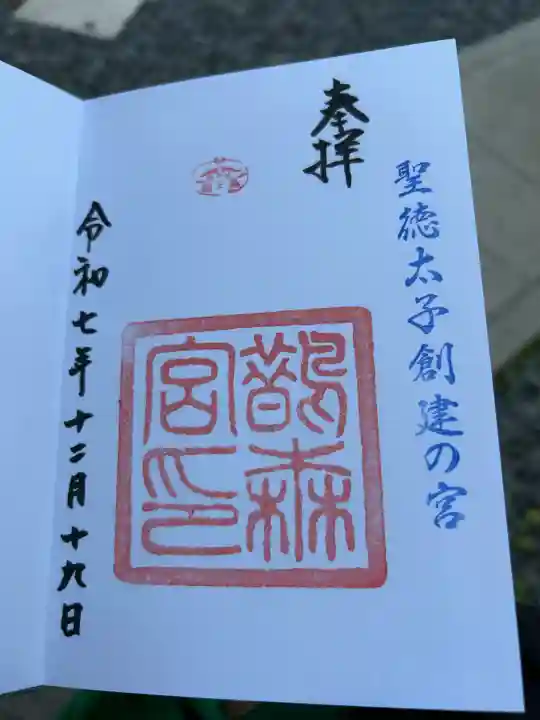 奉拝
聖徳太子創建の宮
鵲森
宮印
令和七年十二月十九日